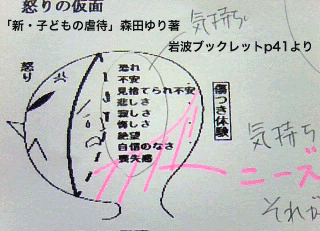 怒りの仮面
「新・子どもの虐待」森田ゆり著
岩波ブックレットp41より
気持ち
怒り
恐れ
不安
見捨てられ不安
悲しさ
寂しさ
悔しさ
絶望
自信のなさ
喪失感
傷つき体験
気持ち
ニーズ
それが